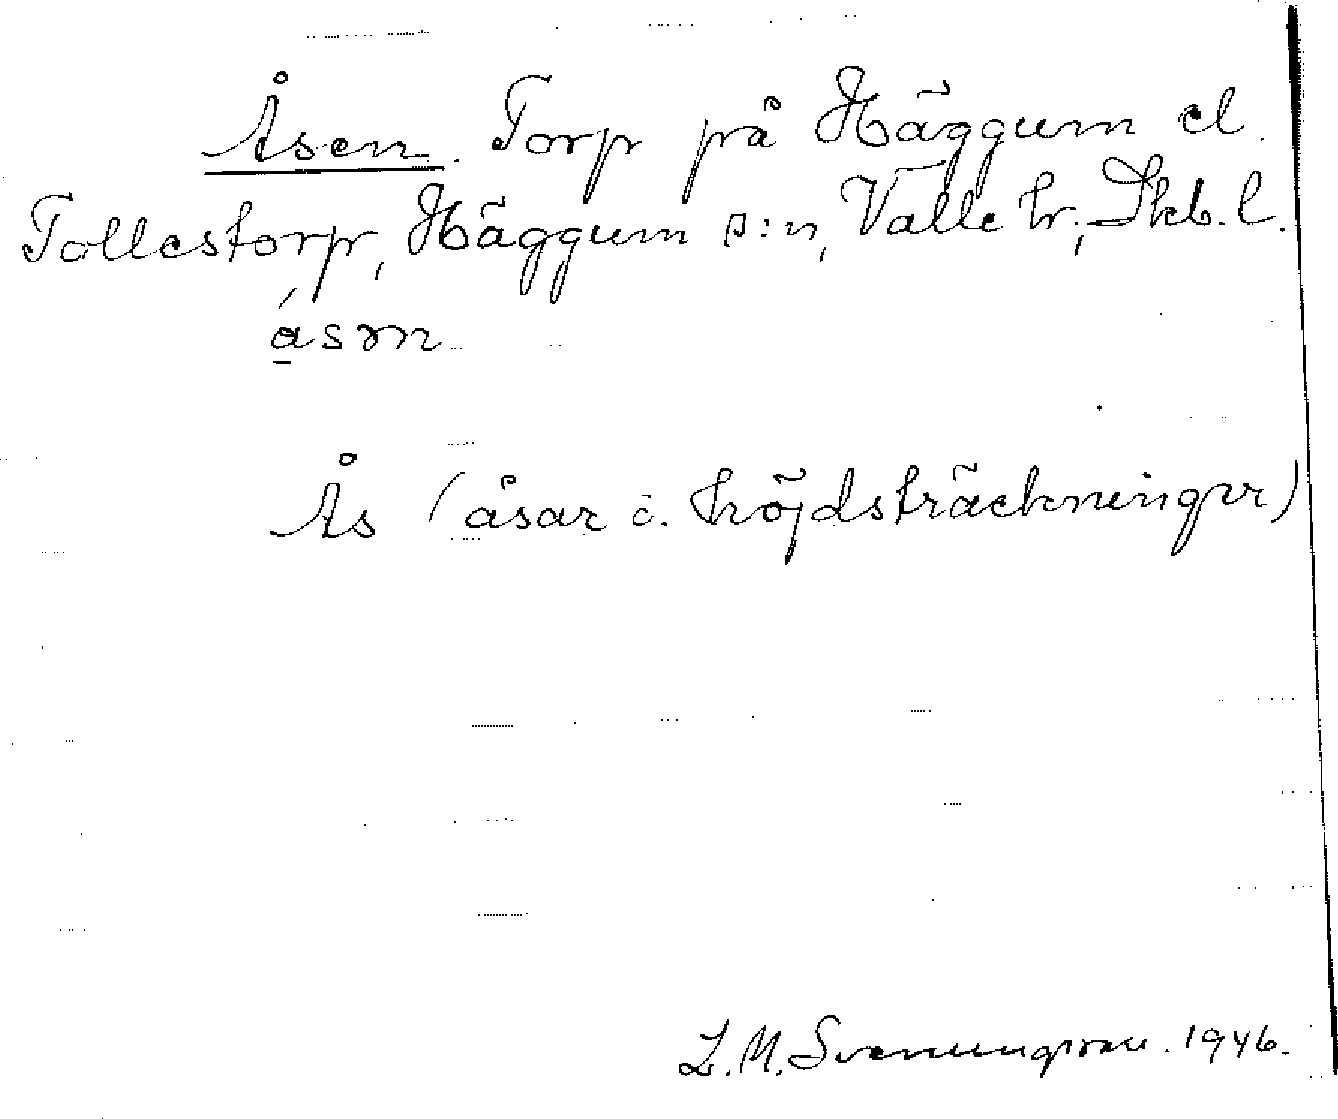 Åsen. Torp på Häggum el.
Tollestorp, Häggum s:n, Valle hr, Skb. l.
ásm
Ås (åsar o. höjdsträckningar)
L. M. Svenungsson. 1946.